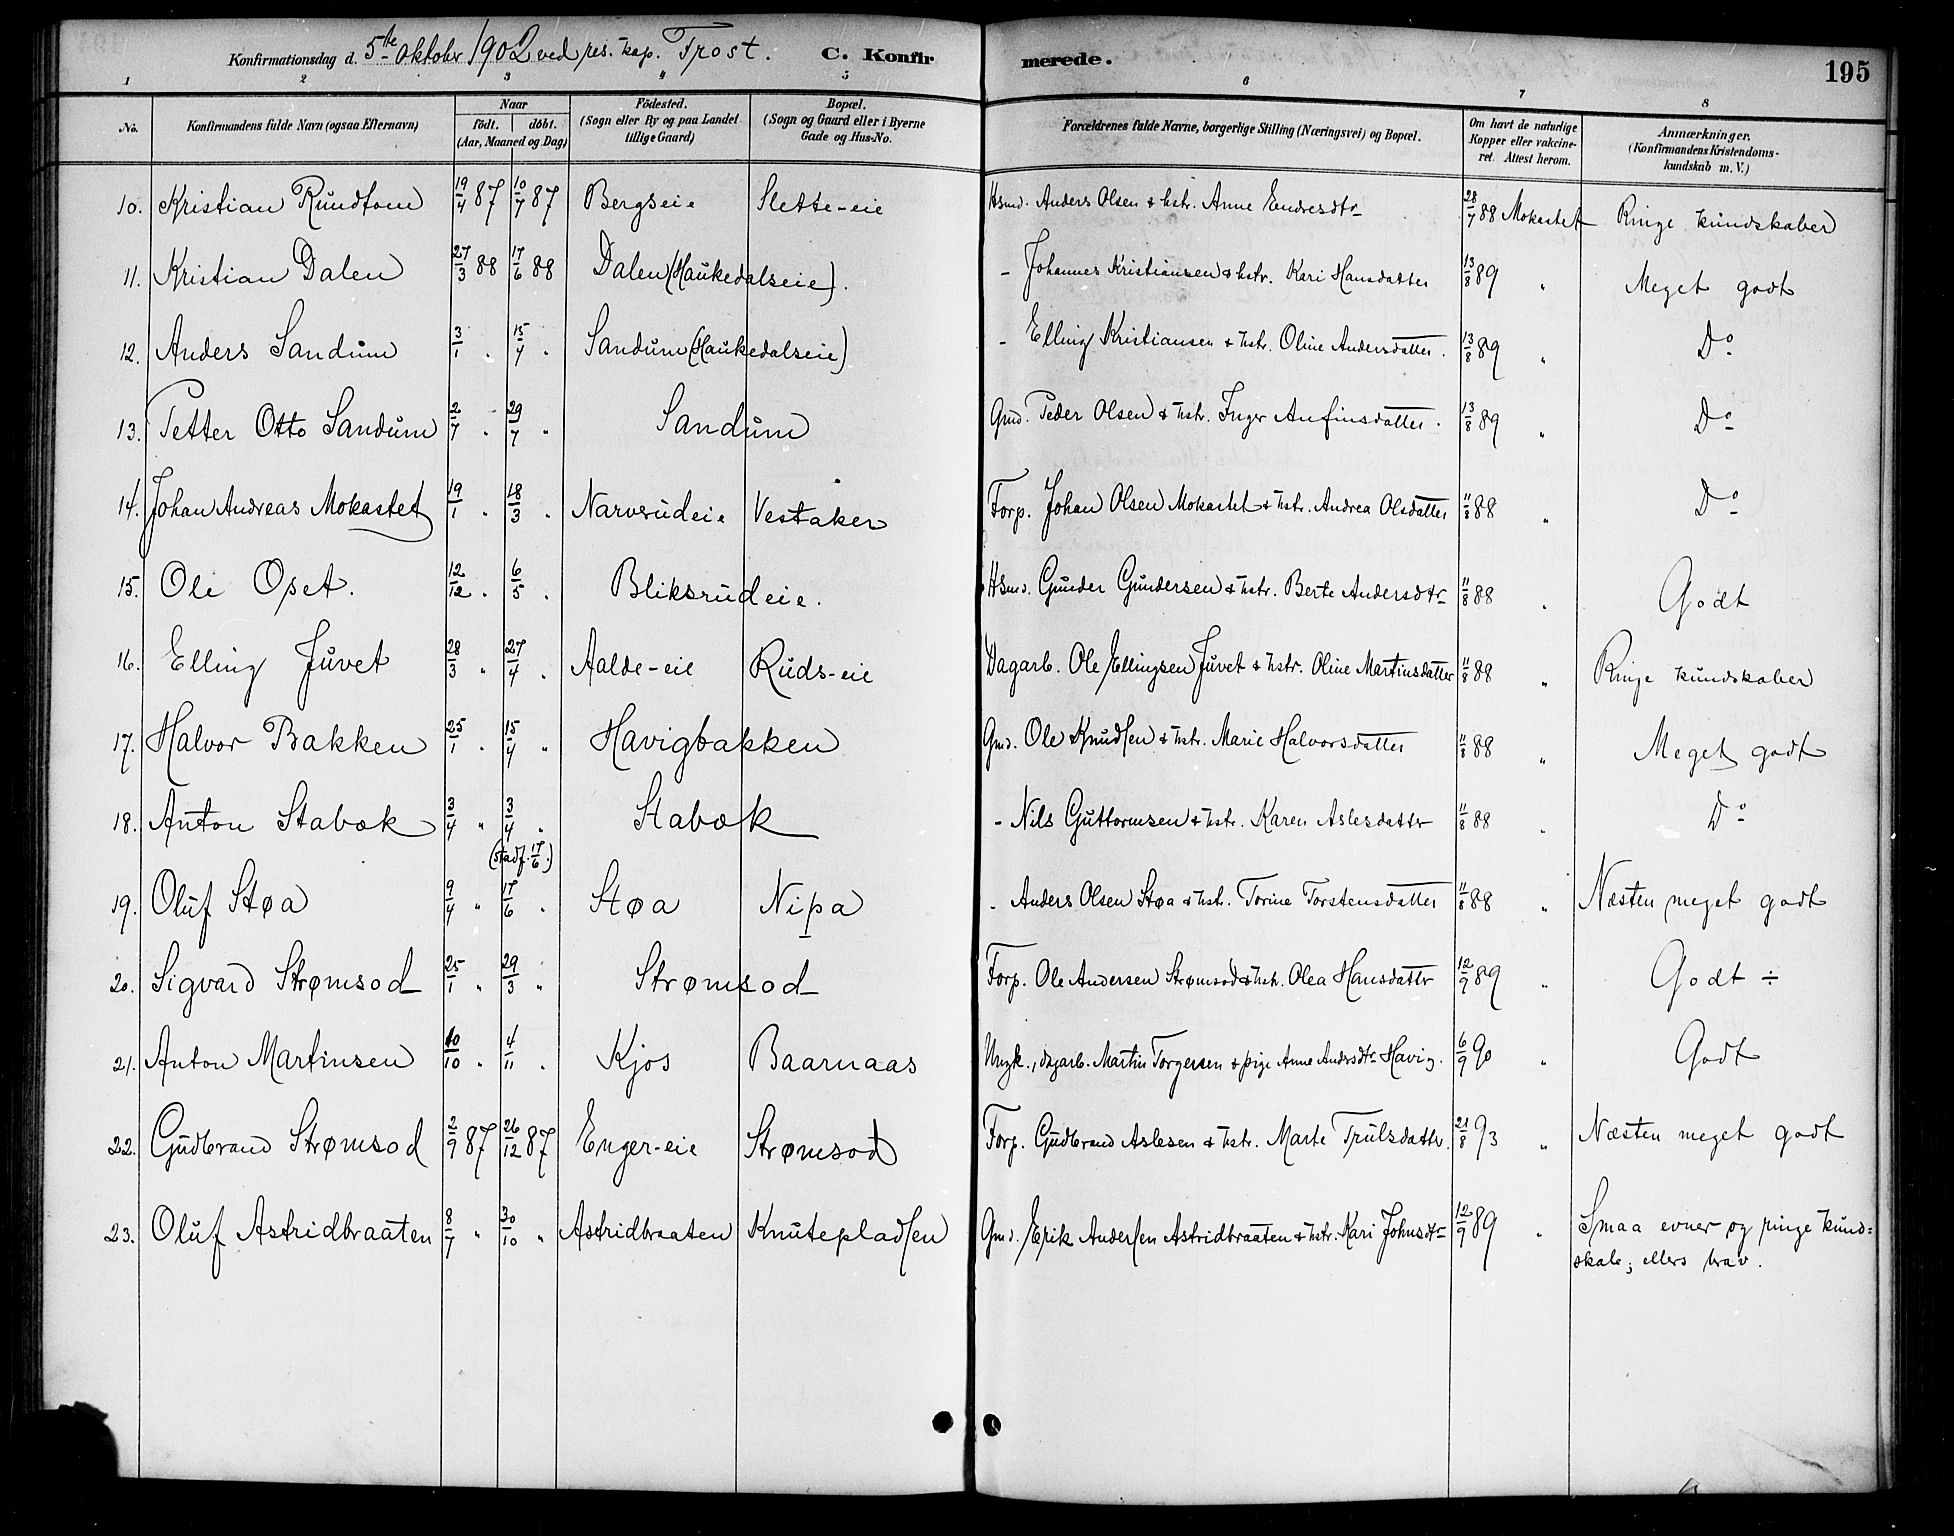 Konfirmationsdag d. 5te Oktobr 1902 ved res. kap. Trost. C. Konfirmerede. 195
1 2 3 4 5 6 7 8
No. Konfirmandens fulde Navn (ogsaa Efternavn) Naar födt. döbt. (Aar, Maaned og Dag) Födested. (Sogn eller By og paa Landet tillige Gaard) Bopæl. (Sogn og Gaard eller i Byerne Gade og Hus-No. Forældrenes fulde Navne, borgerlige Stilling (Næringsvei) og Bopæl. Om havt de naturlige Kopper eller vakcineret. Attest herom. Anmærkninger. (Konfirmandens Kristendomskundskab m. V.)
10. Kristian Rundtom 19/4 87 10/7 87 Bergseie Slette-eie Hsmd. Anders Olsen & hstr. Anne Endresdtr 28/7 88 Mokastet Ringe kundskaber
11. Kristian Dalen 27/3 88 17/6 88 Dalen (Haukedalseie). - Johannes Kristiansen & hstr. Kari Hansdatter 13/8 89 " Meget godt
12. Anders Sandum 3/1 " 15/4 " Sandum (Haukedalseie) - Elling Kristiansen & hstr. Oline Andersdatter. 13/8 89 " Do
13. Petter Otto Sandum 2/7 " 29/7 " Sandum Gmd. Peder Olsen & hstr. Inger Anfinsdatter. 13/8 89 " Do
14. Johan Andreas Mokastet 19/1 " 18/3 " Narverudeie Vestaker Forp. Johan Olsen Mokastet & hstr. Andrea Olsdatter 11/8 88 " Do
15. Ole Opset. 12/12 " 6/5 " Bliksrudeie. Hsmd. Gunder Gundersen & hstr. Berte Andersdtr 11/8 88 " Godt
16. Elling Juvet 28/3 " 27/4 " Aalde-eie Ruds-eie Dagarb. Ole Ellingsen Juvet & hstr. Oline Martinsdatter 11/8 88 " Ringe kundskaber
17. Halvor Bakken 25/1 " 15/4 " Havigbakken Gmd. Ole Knudsen & hstr. Marie Halvorsdatter 11/8 88 " Meget godt
18. Anton Stabæk 3/4 " 3/4 " Stabæk - Nils Guttormsen & hstr. Karen Aslesdatter 11/8 88 " Do
(stadf. 17/6.)
19. Oluf Støa 9/4 " 17/6 " Støa Nipa - Anders Olsen Støa & hstr. Torine Torstensdatter 11/8 88 " Næsten meget godt
20. Sigvard Strømsod 25/1 " 29/3 " Strømsod Forp. Ole Andersen Strømsod & hstr. Olea Hansdatter 12/9 89 " Godt ÷
21. Anton Martinsen 10/10 " 4/11 " Kjos Baarnaas Ungk., dagarb. Martin Torgersen & pige Anne Andersdtr Havig. 6/9 90 " Godt
22. Gudbrand Strømsod 2/9 87 26/12 87 Enger-eie Strømsod Forp. Gudbrand Aslesen & hstr. Marte Trulsdatter. 21/8 93 " Næsten meget godt
23. Oluf Astridbraaten 8/7 " 30/10 " Astridbraaten Knutepladsen Gmd. Erik Andersen Astridbraaten & hstr. Kari Johnsdtr 12/9 89 " Smaa evner og ringe kund=
skab; ellers brav.